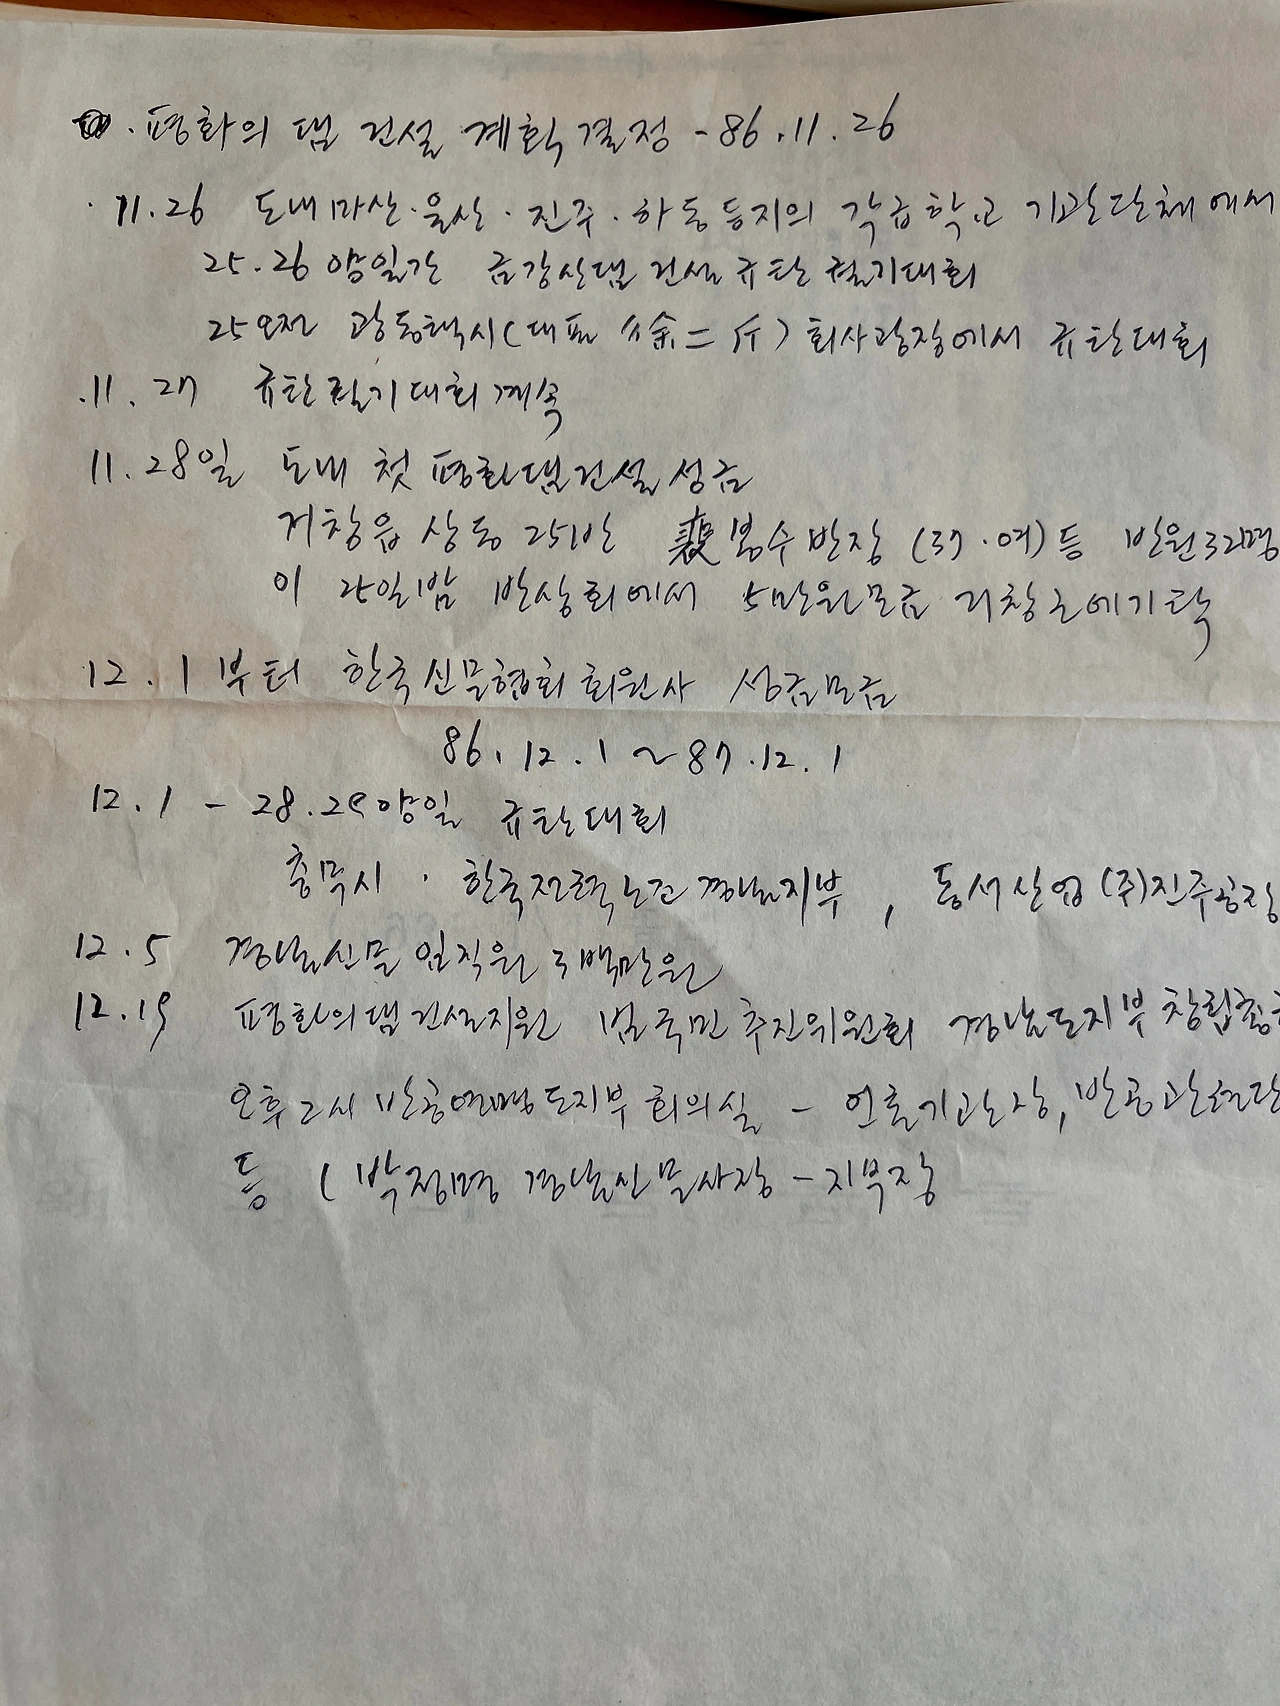 · 평화의 댐 건설 계획 결정 - 86.11.26
· 11.26 도내 마산·울산·진주·하동 등지의 각급학교 기관단체에서
25.26 양일간 금강산댐 건설 규탄 궐기대회
25오전 광동택시(대표 徐二斤) 회사광장에서 규탄대회
.11.27 규탄궐기대회 계속
11.28일 도내 첫 평화댐건설 성금
거창읍 상동 25반 裵봉수 반장 (37·여) 등 반원32명
이 25일밤 반상회에서 5만원모금 거창군에 기탁
12.1부터 한국신문협회 회원사 성금모금
86.12.1~87.12.1
12.1 - 28.29양일 규탄대회
충무시 · 한국전력노조 경남지부, 동서산업(주)진주공장
12.5 경남신문 임직원 3백만원
12.19 평화의댐건설지원 범국민 추진위원회 경남도지부 창립총
오후2시 반공연맹도지부 회의실 - 언론기관장, 반공관련단
등 (박정명 경남신문사장 - 지부장